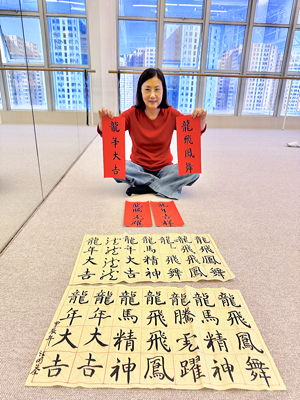 龍飛鳳舞
龍年大吉
龍年吉祥
龍騰虎躍
龍飛鳳舞
龍馬精神
龍年大吉
龍年大吉
龍飛鳳舞
龍馬精神
龍騰虎躍
龍飛鳳
龍馬精神
龍年大吉
龍年大吉
甲辰年